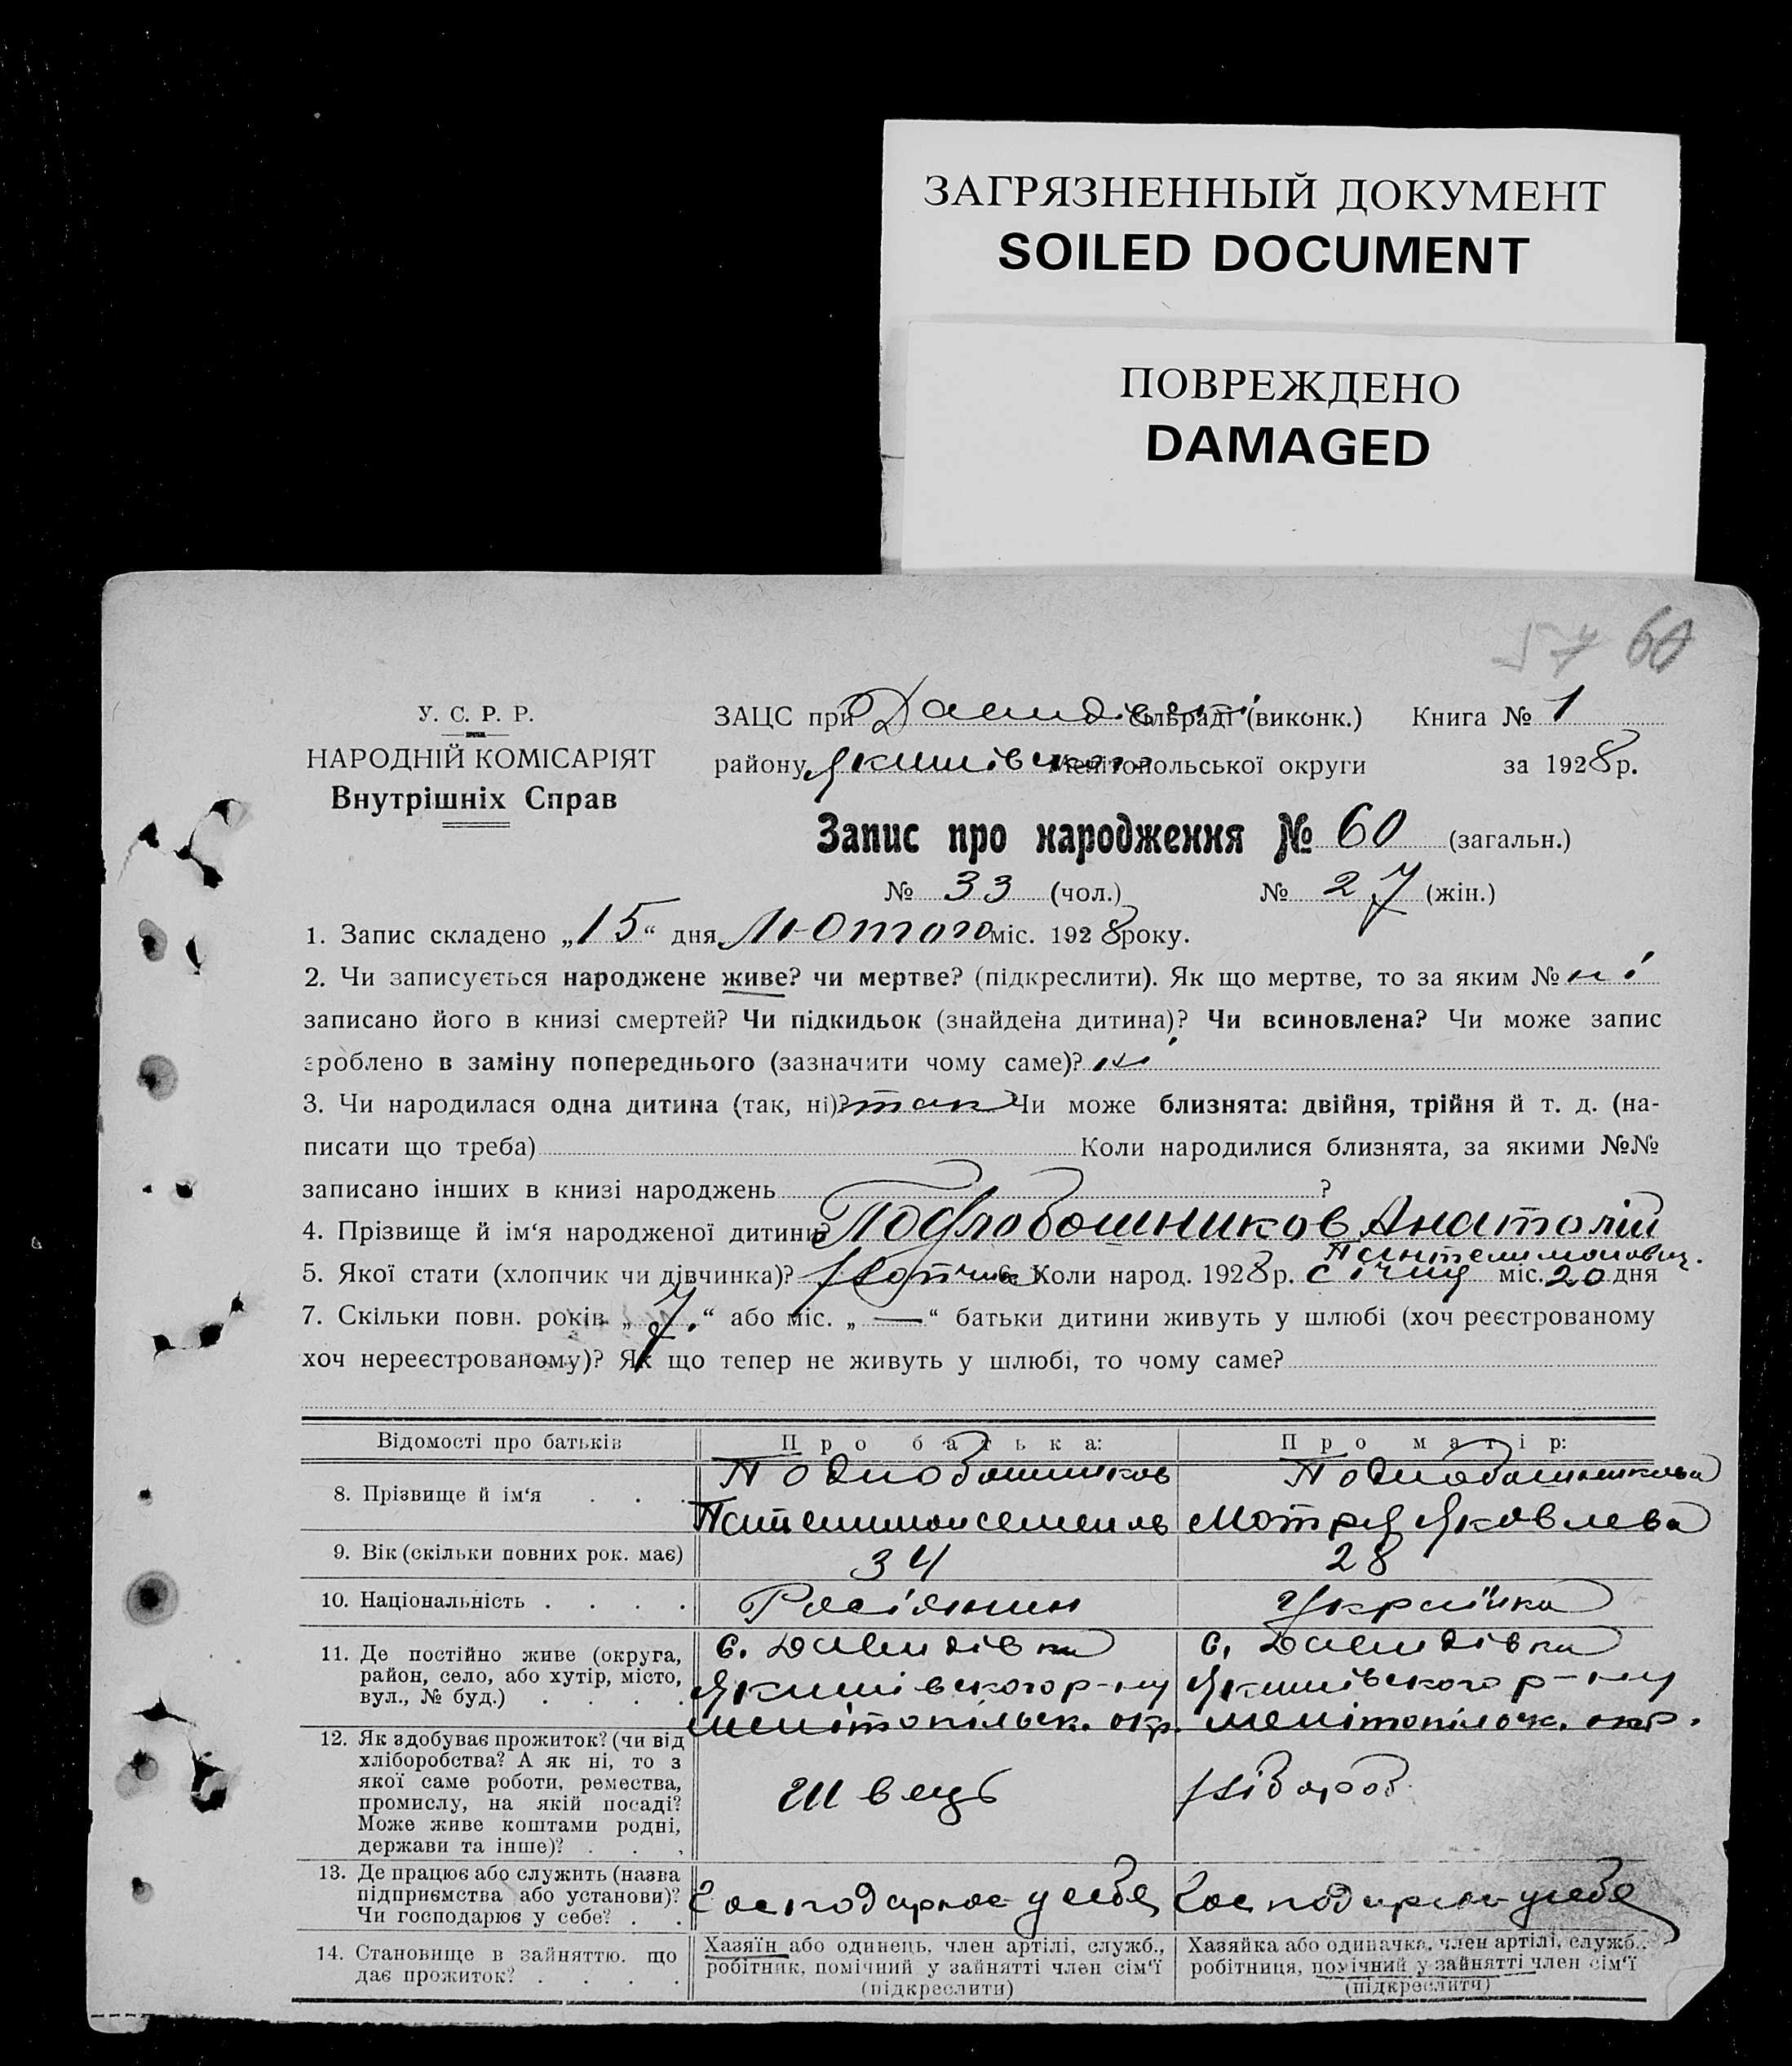 ЗАГРЯЗНЕННЫЙ ДОКУМЕНТ
SOILED DOCUMENT
ПОВРЕЖДЕНО
DAMAGED
57 60
У. С. Р. Р.
НАРОДНІЙ КОМІСАРІЯТ
Внутрішніх Справ
ЗАЦС при Давидівські сільраді (виконк.) Книга № 1
району Якимівськ Мелітопольської округи за 1928 р.
Запис про народження № 60 (загальн.)
№ 33 (чол.) № 27 (жін.)
1. Запис складено „15“ дня Лютого міс. 1928 року.
2. Чи записується народжене живе? чи мертве? (підкреслити). Як що мертве, то за яким № ні
записано його в книзі смертей? Чи підкидьок (знайдена дитина)? Чи всиновлена? Чи може запис
зроблено в заміну попереднього (зазначити чому саме)? ні
3. Чи народилася одна дитина (так, ні)? так Чи може близнята: двійня, трійня й т. д. (на-
писати що треба) Коли народилися близнята, за якими №№
записано інших в книзі народжень ?
4. Прізвище й ім‘я народженої дитини? Подлобошников Анатолій
Пантелимонович.
5. Якої стати (хлопчик чи дівчинка)? Хлопчик 6. Коли народ. 1928 р. січня міс. 20 дня
7. Скільки повн. років „7.“ або міс. „—“ батьки дитини живуть у шлюбі (хоч реєстрованому
хоч нереєстрованому)? Як що тепер не живуть у шлюбі, то чому саме?
Відомості про батьків Про батька: Про матір:
8. Прізвище й ім‘я . . . Подлобошников Подлобошникова
Мотря Яковлева
9. Вік (скільки повних рок. має) 34 28
10. Національність . . . . Росіянин Українка
11. Де постійно живе (округа, район, село, або хутір, місто, вул., № буд.) . . . .
с. Давидівка с. Давидівка
Якимівского р-ну Якимівского р-ну
мелітопільск. окр. мелітопільск. окр.
12. Як здобуває прожиток? (чи від
хліборобства? А як ні, то з
якої саме роботи, ремества,
промислу, на якій посаді?
Може живе коштами родні,
держави та інше)? . . .
Швець Хлібороб.
13. Де працює або служить (назва
підприємства або установи)?
Чи господарює у себе? . .
Господарює у себе Господарює у себе
14. Становище в зайняттю, що
дає прожиток? . . . .
Хазяїн або одинець, член артілі, служб.,
робітник, помічний у зайнятті член сім‘ї
(підкреслити)
Хазяйка або одиначка, член артілі, служб.,
робітниця, помічний у зайнятті член сім‘ї
(підкреслити)